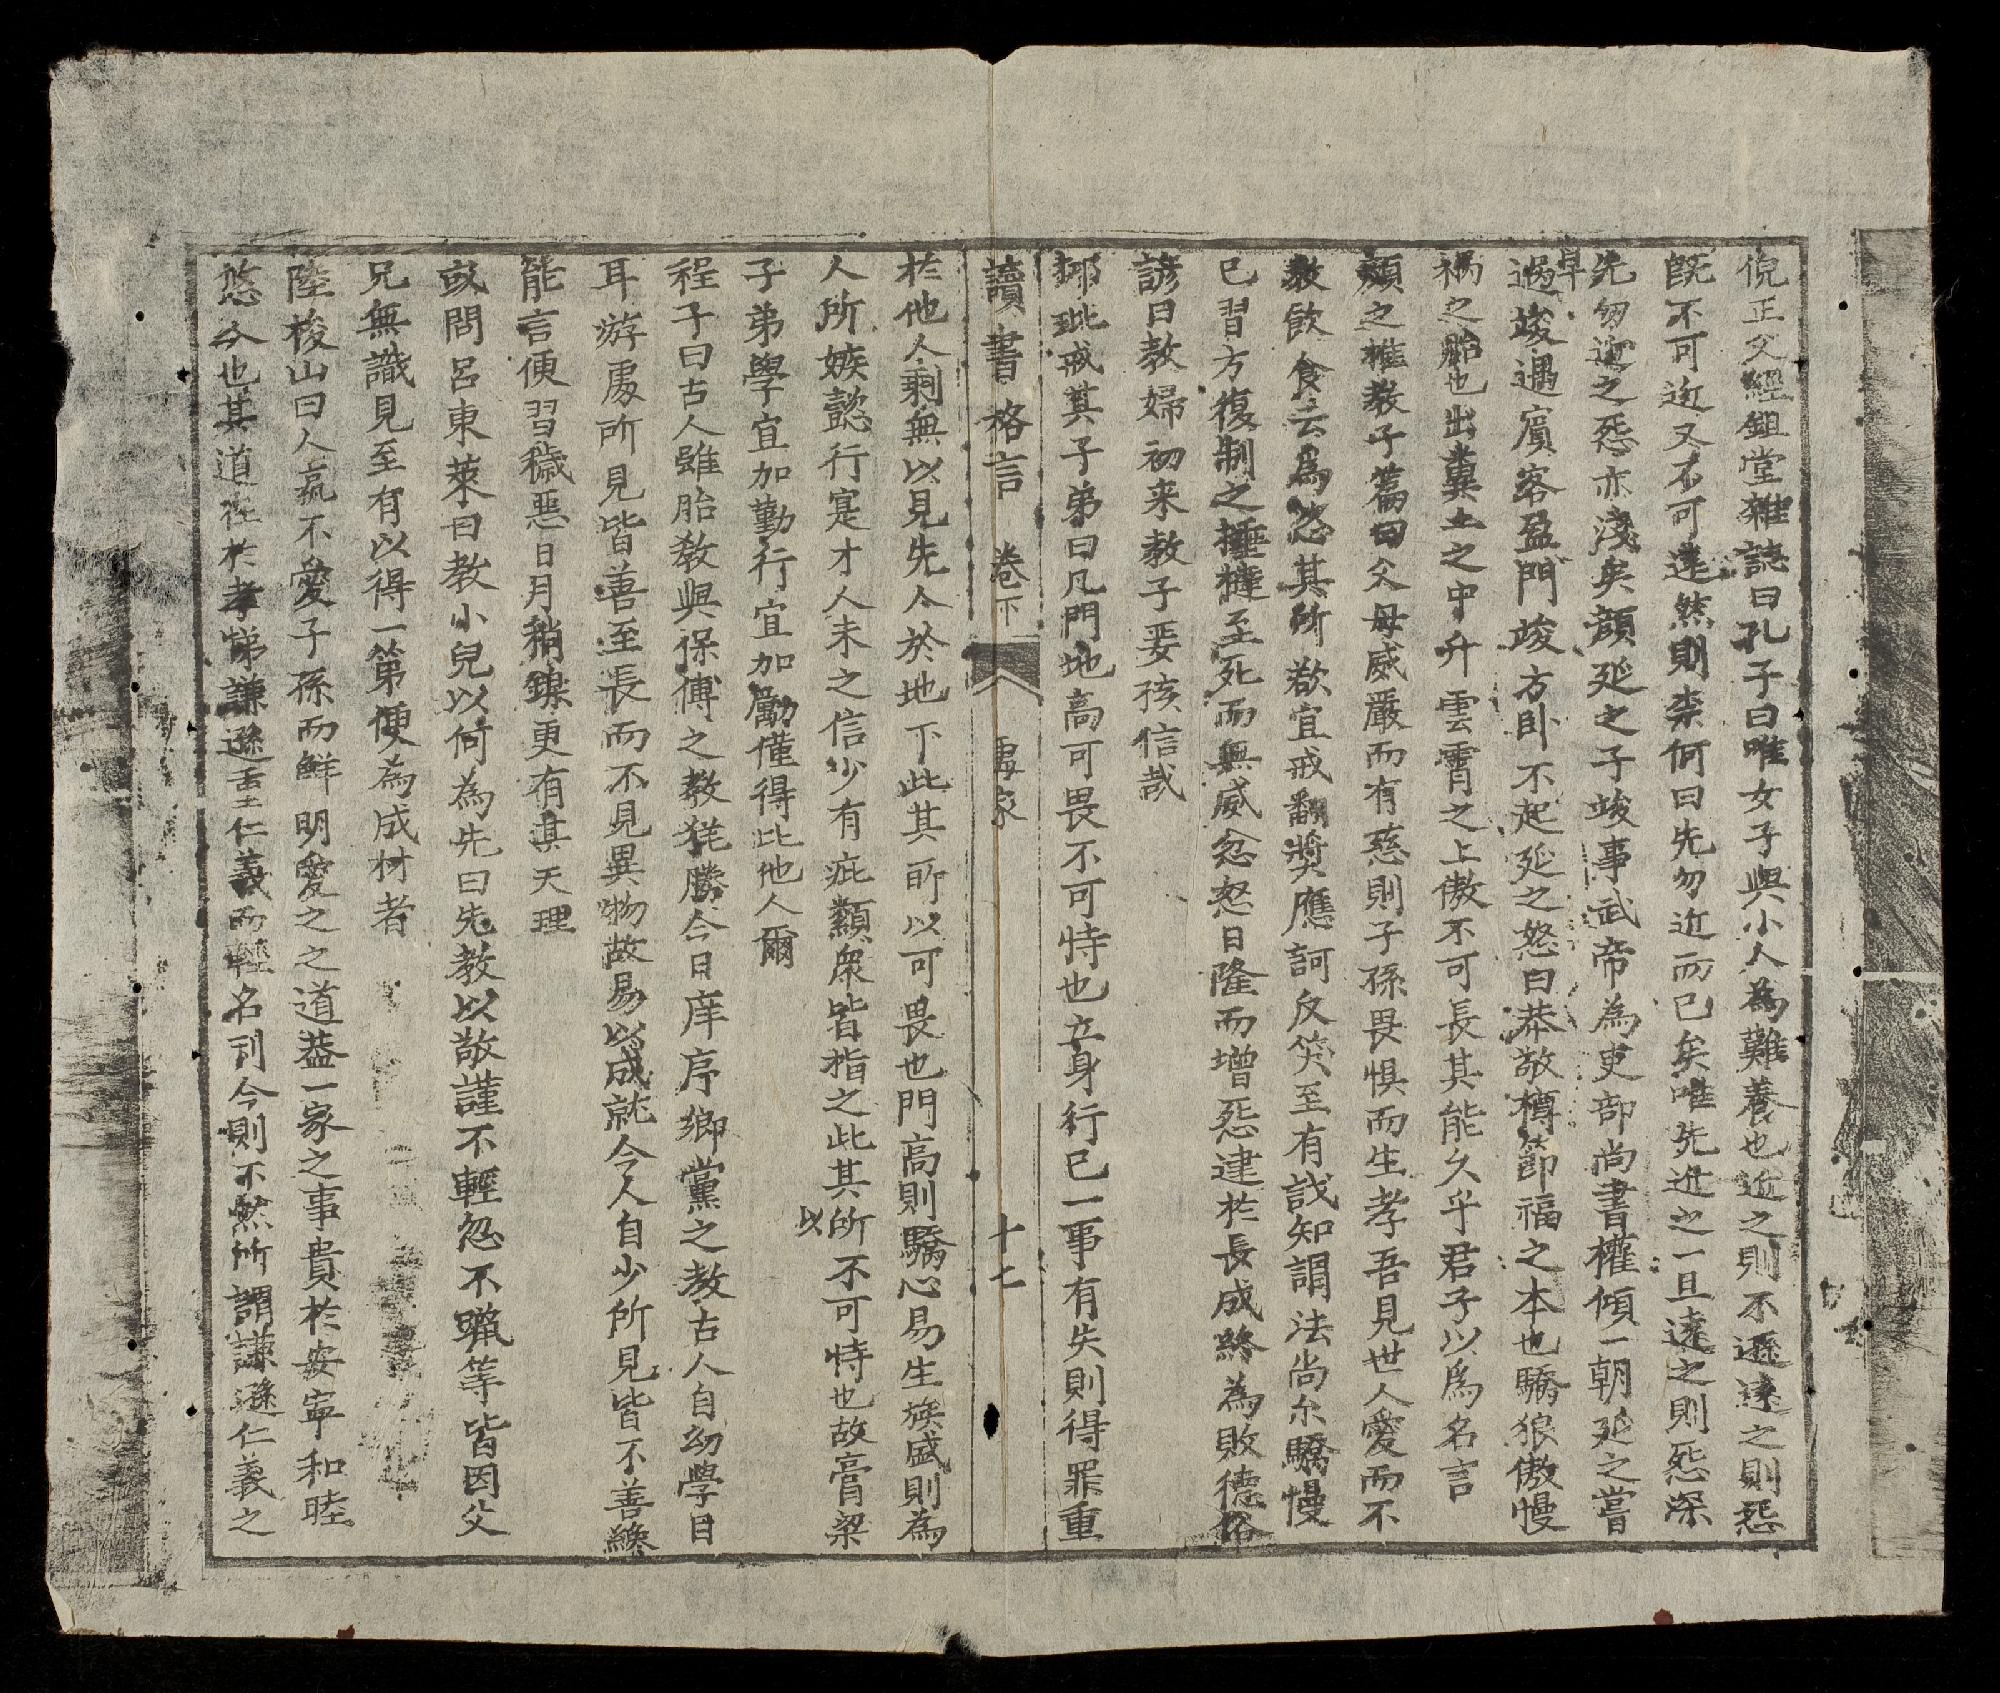 倪正父經鉏堂雜誌曰孔子曰唯女子與小人為難養也近之則不遜遠之則怨
既不可近又不可遠然則柰何曰先勿近而已矣唯先近之一旦遠之則怨深
先勿近之怨亦淺矣顔延之子竣事武帝為吏部尚書權傾一朝延之嘗
早
過竣遇賓客盈門竣方卧不起延之怒曰恭敬樽節福之本也驕狠傲慢
禍之胎也出糞土之中升雲霄之上傲不可長其能久乎君子以爲名言
顔之推教子篇曰父母威嚴而有慈則子孫畏惧而生孝吾見世人愛而不
教飲食云爲恣其所欲宜戒翻奬應訶反笑至有識知謂法尚尓驕慢
已習方復制之捶撻至死而無威忿怒日隆而增怨逮於長成終為敗德俗
諺曰教婦初来教子嬰孩信哉
柳玭戒其子弟曰凡門地高可畏不可恃也立身行已一事有失則得罪重
讀書格言 卷下 處家 十七
於他人剩無以見先人於地下此其所以可畏也門高則驕心易生族盛則為
人所嫉懿行寔才人未之信少有疵纇衆皆指之此其所不可恃也故膏粱
以
子弟學宜加勤行宜加勵僅得比他人爾
程子曰古人雖胎教與保傅之教猶勝今日庠序鄉黨之教古人自幼學目
耳游處所見皆善至長而不見異物故易以成就今人自少所見皆不善纔
能言便習穢惡日月稍鑠更有甚天理
或問呂東萊曰教小兒以何為先曰先教以敬謹不輕忽不躐等皆因父
兄無識見至有以得一第便為成材者
陸梭山曰人孰不愛子孫而鮮明愛之之道葢一家之事貴於安寧和睦
悠久也其道在於孝悌謙遜重仁義而輕名利今則不然所謂謙遜仁義之